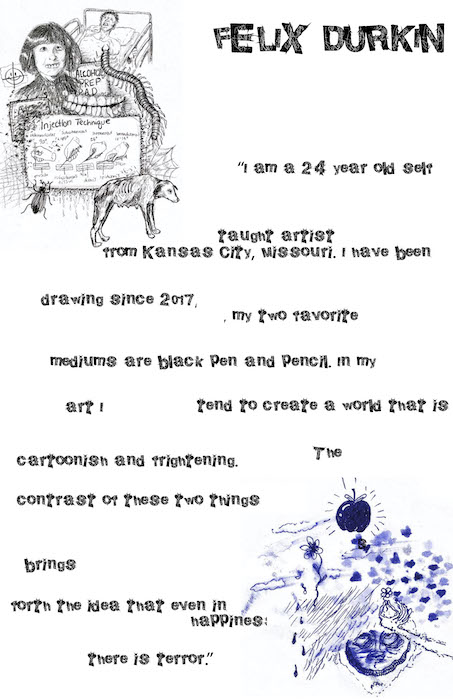 FELIX DURKIN
ALCOHOL
PREP
PAD
Injection Technique
"I am a 24 year old self
taught artist
from Kansas City, Missouri. I have been
drawing since 2017,
, my two favorite
mediums are black pen and pencil. In my
art I tend to create a world that is
cartoonish and frightening. The
contrast of these two things
brings
forth the idea that even in
happiness
there is terror."